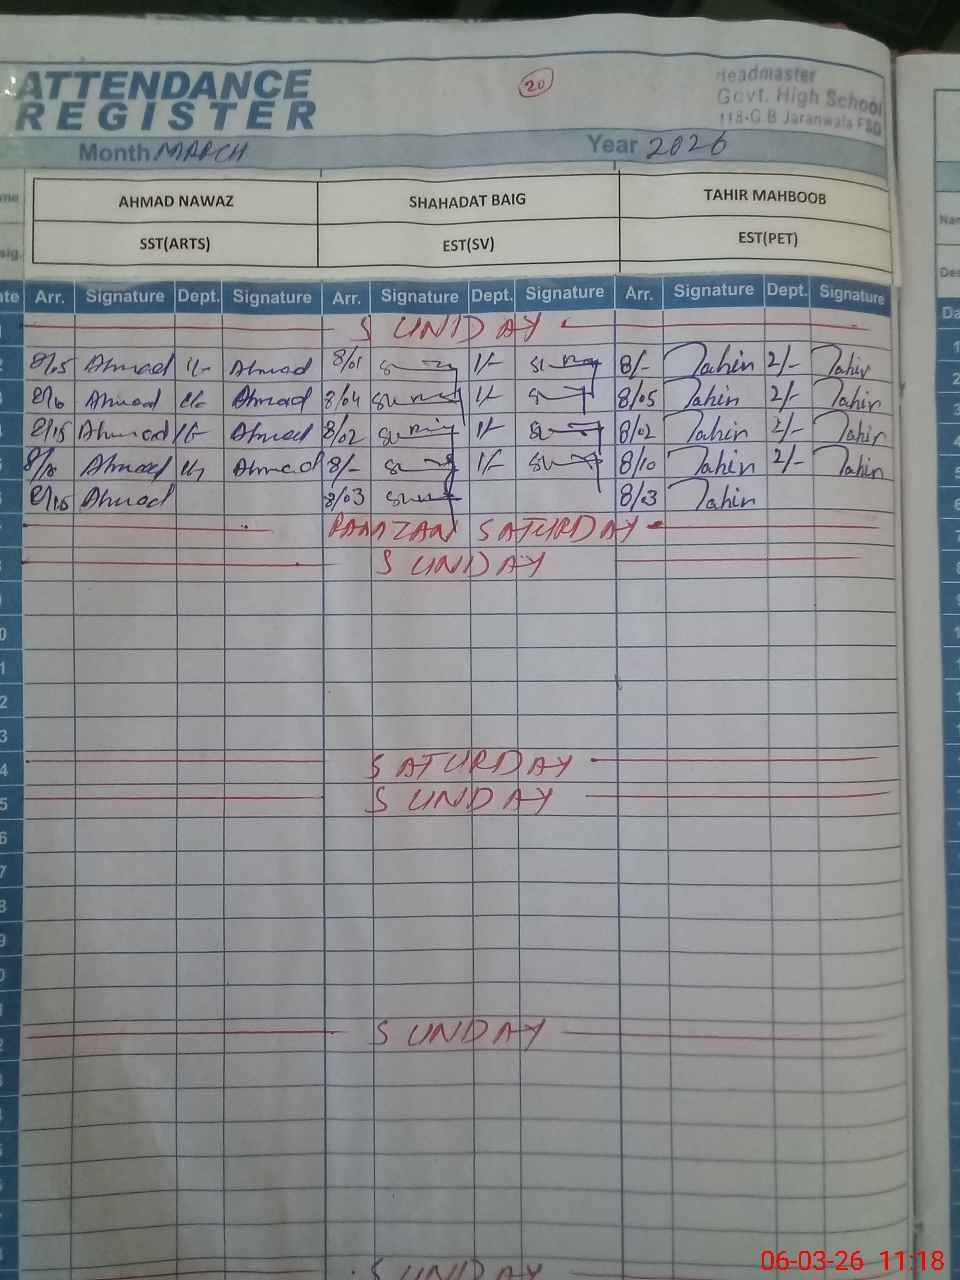 ATTENDANCE
REGISTER
20
Headmaster
Govt. High School
118-G.B Jaranwala FSD
Month MARCH Year 2026
AHMAD NAWAZ SHAHADAT BAIG TAHIR MAHBOOB
SST(ARTS) EST(SV) EST(PET)
Arr. Signature Dept. Signature Arr. Signature Dept. Signature Arr. Signature Dept. Signature
SUNDAY
8/05 Ahmad Ahmad 8/01 1/- 8/- Tahir 2/- Tahir
Ahmad Ahmad 8/04 1/- 8/05 Tahir 2/- Tahir
8/15 Ahmad Ahmad 8/02 1/- 8/02 Tahir 2/- Tahir
Ahmad Ahmad 8/- 1/- 8/10 Tahir 2/- Tahir
Ahmad 8/03 8/03 Tahir
RAMZAN SATURDAY
SUNDAY
SATURDAY
SUNDAY
SUNDAY
SUNDAY
06-03-26 11:18